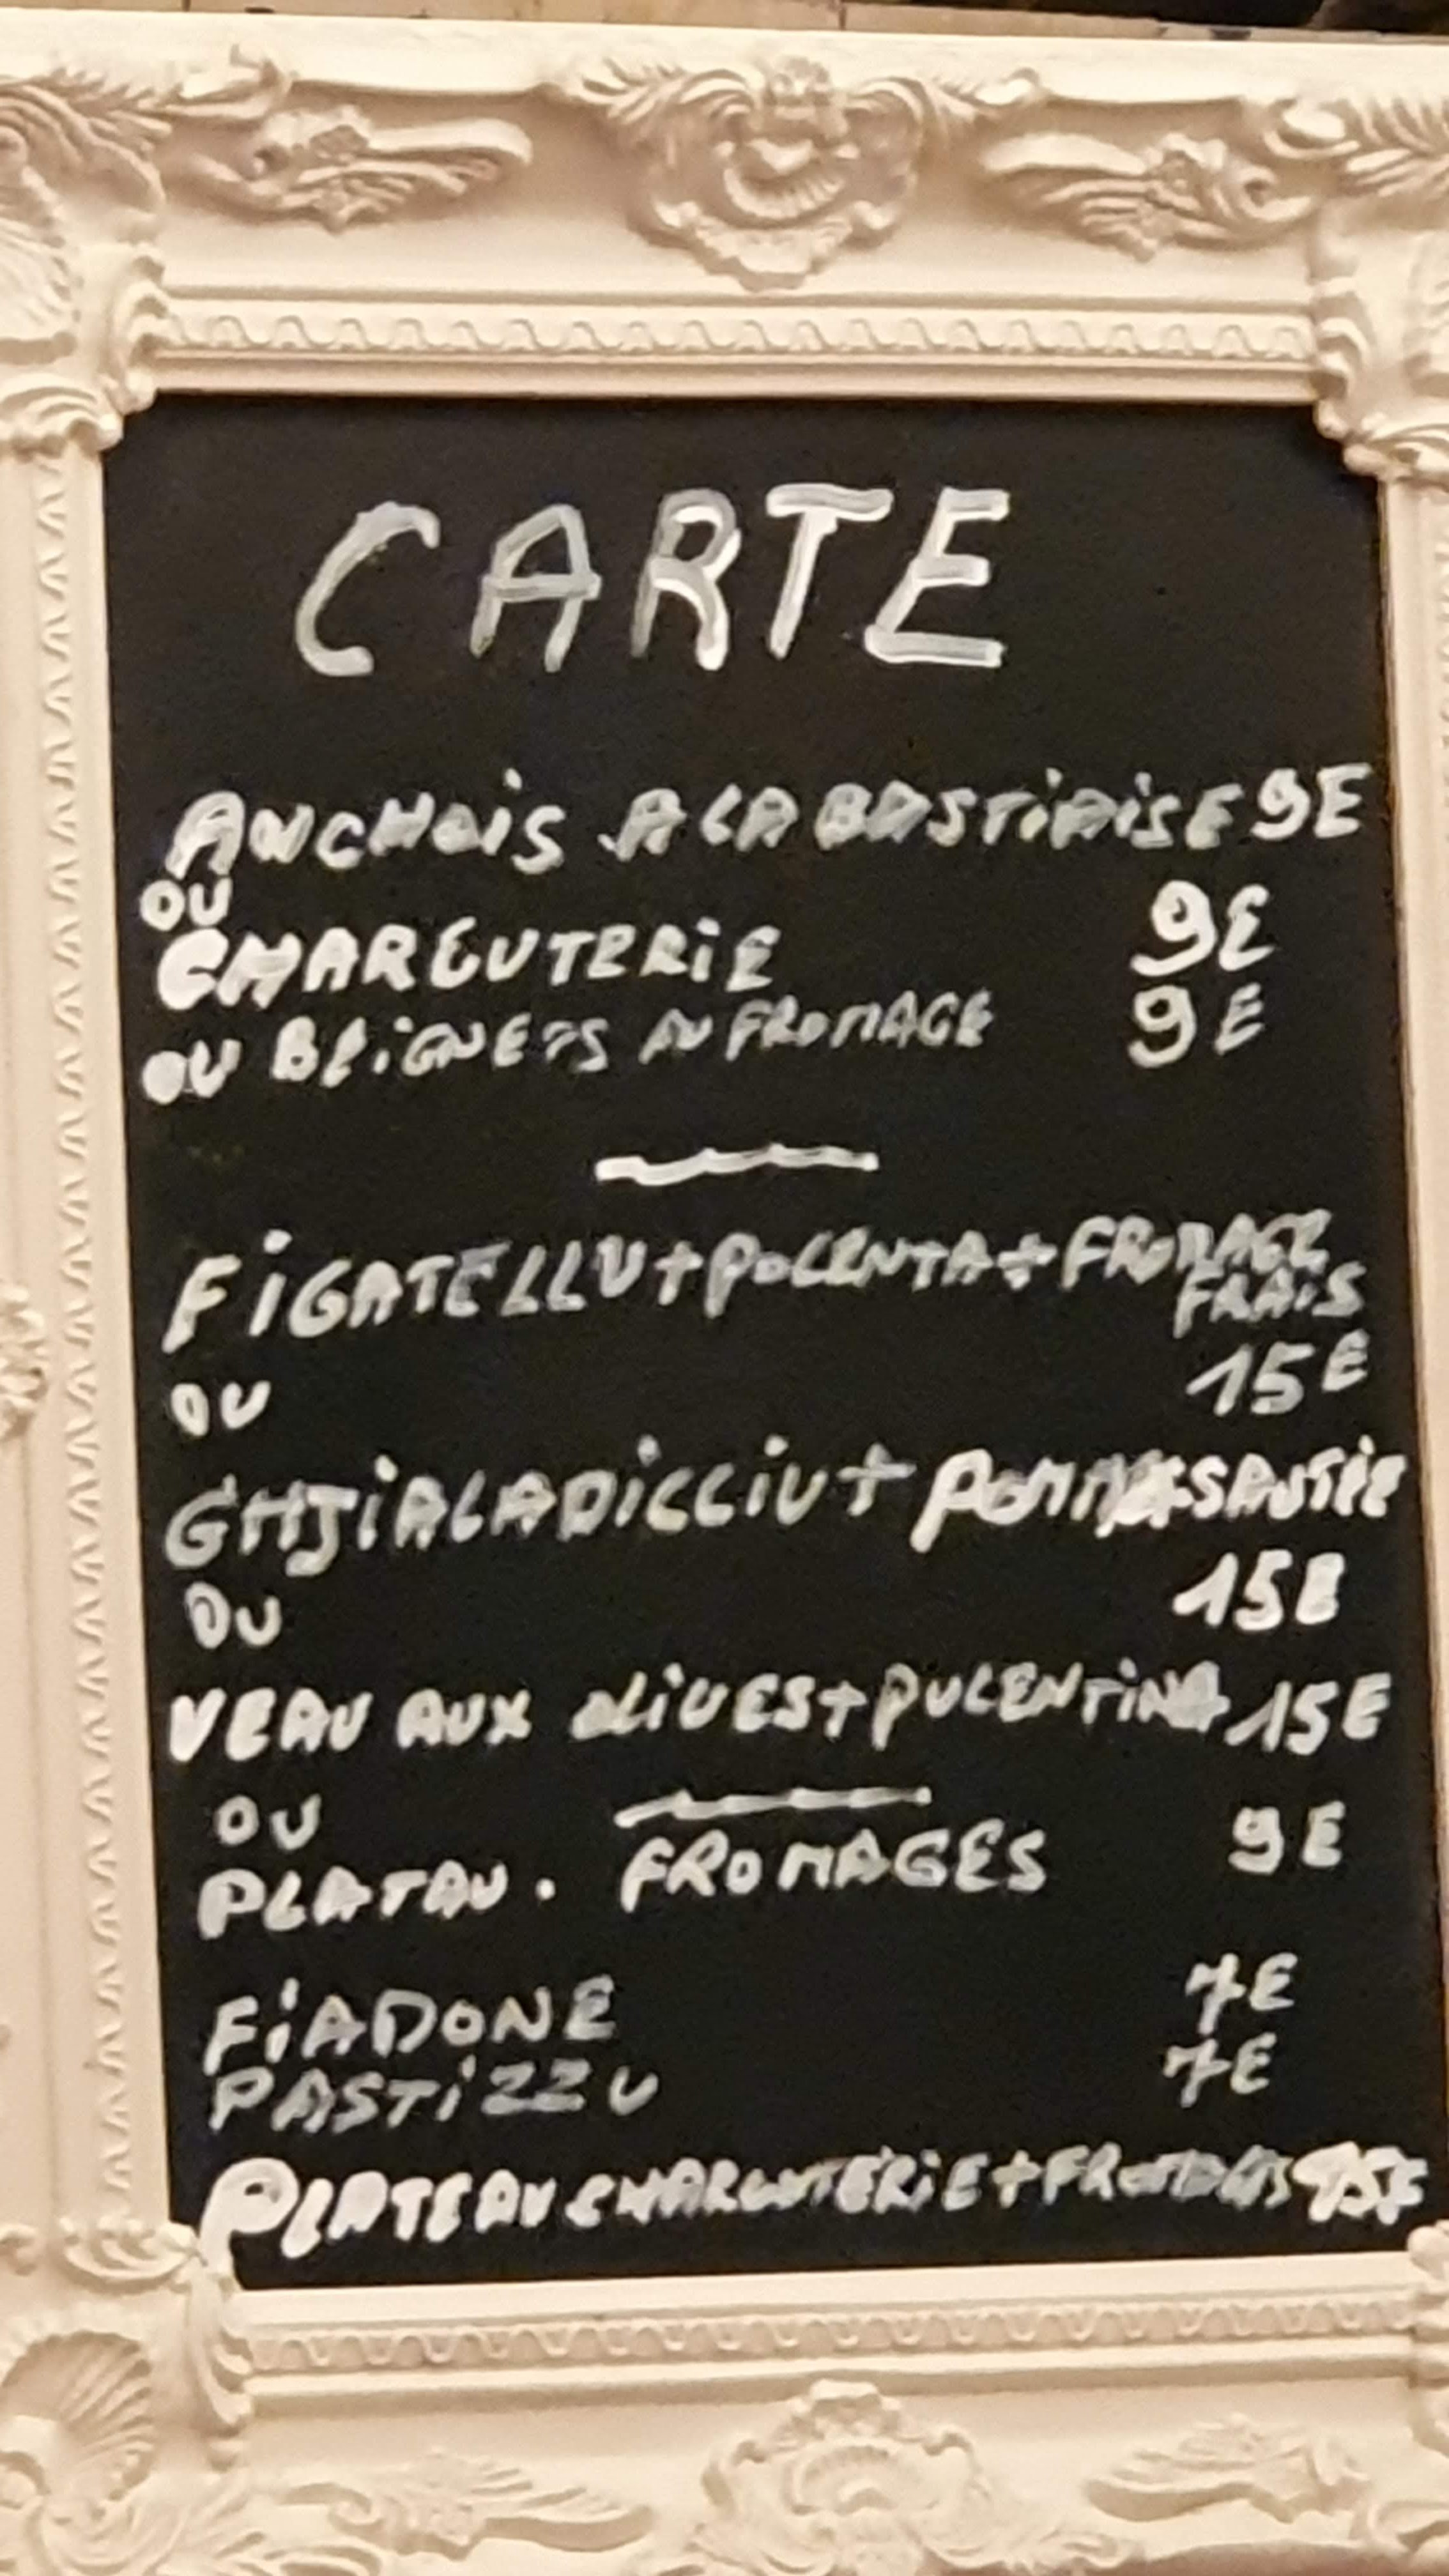 CARTE
ANCHOIS A LA BASTIAISE 9E
OU
CHARCUTERIE 9E
OU BEIGNETS AU FROMAGE 9E
FIGATELLU+POLENTA+FROMAGE
FRAIS
15E
OU
GHJIALADICCIU+POMMESSAUTÉE
15E
OU
VEAU AUX OLIVES+PULENTINA 15E
OU
PLATAU. FROMAGES 9E
FIADONE 7E
PASTIZZU 7E
PLATEAU CHARCUTERIE+FROMAGES